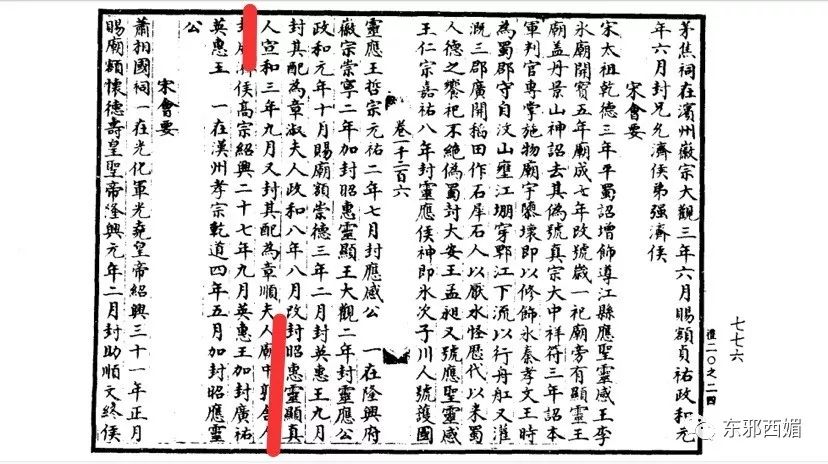 茅焦祠在濱州徽宗大觀三年六月賜額貞祐政和元
年六月封兄允濟侯弟强濟侯
宋會要
宋太祖乾德三年平蜀詔增飾導江縣應聖靈感王李
氷廟開寶五年廟成七年改號歲一祀廟旁有顯靈王
廟蓋丹景山神詔去其偽號真宗大中祥符三年詔本
軍判官專掌施物廟宇隳壞即以修飾氷秦孝文王時
為蜀郡守自汶山壅江堋穿郫江下流以行舟舡又灌
溉三郡廣開稻田作石犀石人以厭水怪歷代以來蜀
人德之饗祀不絶偽蜀封大安王孟昶又號應聖靈感
王仁宗嘉祐八年封靈應侯神即氷次子川人號護國
卷一千二百六
靈應王哲宗元祐二年七月封應感公 一在隆興府
徽宗崇寧二年加封昭惠靈顯王大觀二年封靈應公
政和元年十月賜廟額崇德三年二月封英惠王九月
封其配為章淑夫人政和八年八月改封昭惠靈顯真
人宣和三年九月又封其配為章順夫人廟中郭舍人
封濟侯高宗紹興二十七年九月英惠王加封廣祐
英惠王 一在漢州孝宗乾道四年五月加封昭應靈
公
宋會要
蕭相國祠一在光化軍光堯皇帝紹興三十一年正月
賜廟額懷德壽皇聖帝隆興元年二月封助順文終侯
禮二〇之二四
七七六
东邪西媚